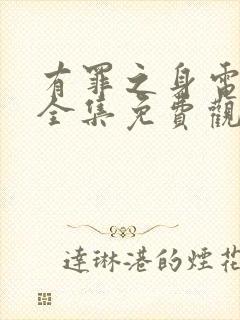 有罪之身電
全集免費觀
達琳港的煙花